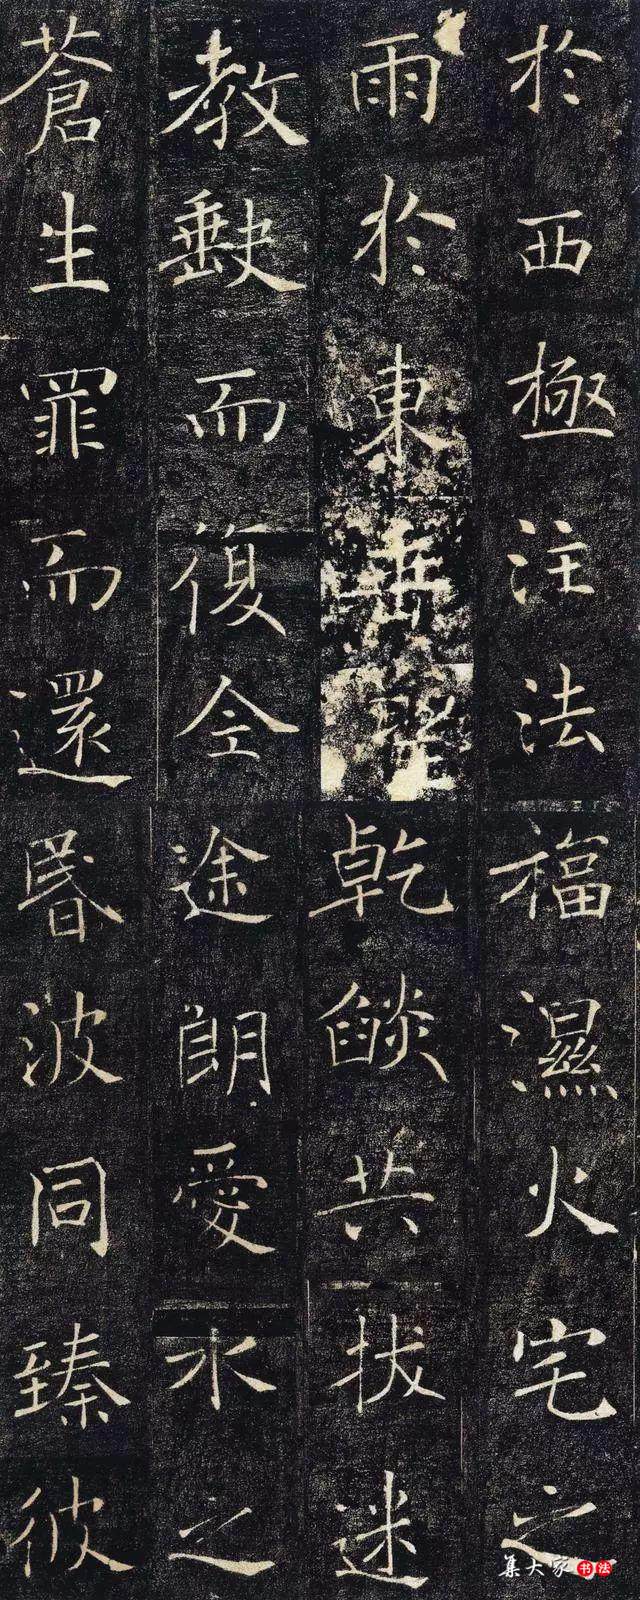 於西極注法
雨於東垂聖
教缺而復全
蒼生罪而還
福濕火宅之
乾燄共拔迷
途朗愛水之
昬波同臻彼
集大家书法